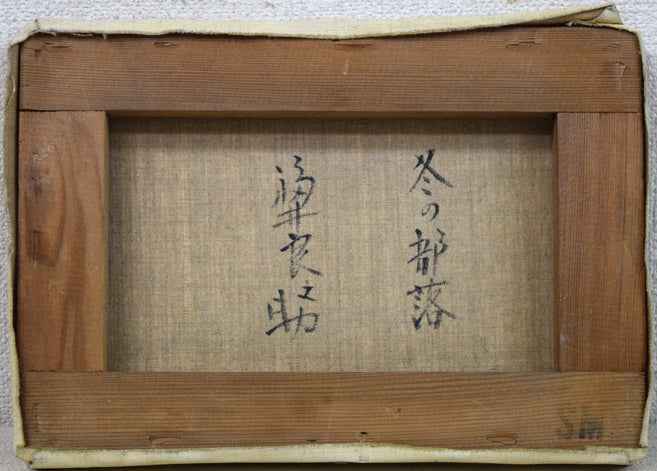 冬の部落
福井良之助
SM